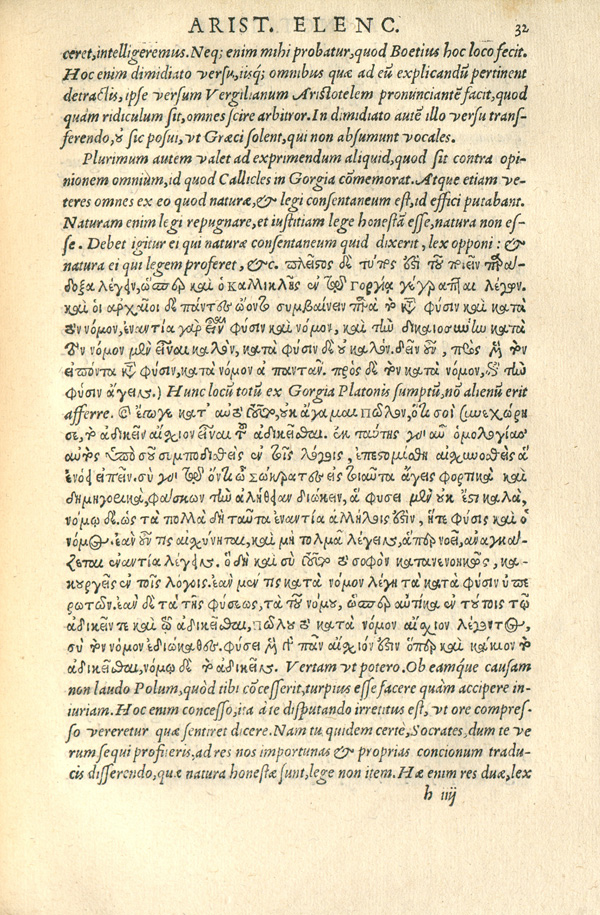 ARIST. ELENC. 32
ceret, intelligeremus. Neq; enim mihi probatur, quod Boetius hoc loco fecit.
Hoc enim dimidiato versu, iisq; omnibus quæ ad eũ explicandũ pertinent
detractis, ipse versum Vergilianum Aristotelem pronunciantẽ facit, quod
quàm ridiculum sit, omnes scire arbitror. In dimidiato autẽ illo versu transferendo,
ȣ sic posui, vt Græci solent, qui non absumunt vocales.
Plurimum autem valet ad exprimendum aliquid, quod sit contra opinionem
omnium, id quod Callicles in Gorgia cõmemorat. Atque etiam veteres
omnes ex eo quod naturæ, & legi consentaneum est, id effici putabant.
Naturam enim legi repugnare, et iustitiam lege honestã esse, natura non esse.
Debet igitur ei qui naturæ consentaneum quid dixerit, lex opponi: &
natura ei qui legem proferet, &c. πλεῖςος δὲ τόπος ἐςὶ τοῦ ποιεῖν παράδοξα
λέγειν, ὥσπερ καὶ ὁ Καλλικλῆς ἐν τῷ Γοργίᾳ γέγραπται λέγων.
καὶ οἱ ἀρχαῖοι δὲ πάντες ᾤοντο συμβαίνειν παρὰ τὸ κατὰ φύσιν καὶ κατὰ
τὸν νόμον, ἐναντία γὰρ εἶναι φύσιν καὶ νόμον, καὶ τὴν δικαιοσύνην κατὰ
τὸν νόμον μὲν εἶναι καλὸν, κατὰ φύσιν δὲ ȣ καλόν. δεῖν οὖν, πρὸς μὲν τὸν
εἰπόντα κατὰ φύσιν, κατὰ νόμον ἀπαντᾶν. πρὸς δὲ τὸν κατὰ νόμον, ἐπὶ τὴν
φύσιν ἄγειν.) Hunc locũ totũ ex Gorgia Platonis sumptũ, nõ alienũ erit
afferre. ἔγωγε κατ' αὐτὸ τοῦτο, οὐκ ἄγαμαι Πῶλον, ὅτι σοὶ συνεχώρησε,
τὸ ἀδικεῖν αἴχιον εἶναι τοῦ ἀδικεῖσθαι. ἐκ ταύτης γὰρ αὖ ὁμολογίας
αὐτὸς ὑπὸ σοῦ συμποδισθεὶς ἐν τοῖς λόγοις, ἐπεςομίσθη αἰχυνθεὶς ἃ
ἐνόει εἰπεῖν. σὺ γὰρ τῷ ὄντι ὦ Σώκρατες εἰς τοιαῦτα ἄγεις φορτικὰ καὶ
δημηγορικὰ, φάσκων τὴν ἀλήθειαν διώκειν, ἃ φύσει μὲν οὐκ ἔςι καλὰ,
νόμῳ δέ. ὡς τὰ πολλὰ δὲ ταῦτα ἐναντία ἀλλήλοις ἐςὶν, ἥτε φύσις καὶ ὁ
νόμος. ἐὰν οὖν τις αἰχύνηται, καὶ μὴ τολμᾷ λέγειν, ἅπερ νοεῖ, ἀναγκάζεται
ἐναντία λέγειν. ὃ δὴ καὶ σὺ τοῦτο τὸ σοφὸν κατανενοηκὼς, κακουργεῖς
ἐν τοῖς λόγοις. ἐὰν μέν τις κατὰ νόμον λέγῃ τὰ κατὰ φύσιν ὑπερωτῶν.
ἐὰν δὲ τὰ τῆς φύσεως, τὰ τοῦ νόμου, ὥσπερ αὐτίκα ἐν τούτοις τῷ
ἀδικεῖν τε καὶ τῷ ἀδικεῖσθαι, Πώλου τὸ κατὰ νόμον αἴχιον λέγοντος,
σὺ τὸν νόμον ἐδιώκαθες. φύσει μὲν γὰρ πᾶν αἴχιόν ἐςιν ὅπερ καὶ κάκιον τὸ
ἀδικεῖσθαι, νόμῳ δὲ τὸ ἀδικεῖν. Vertam vt potero. Ob eamque causam
non laudo Polum, quòd tibi cõcesserit, turpius esse facere quàm accipere iniuriam.
Hoc enim concesso, ita à te disputando irretitus est, vt ore compresso
vereretur quæ sentiret dicere. Nam tu quidem certè, Socrates, dum te verum
sequi profiteris, ad res nos importunas & proprias concionum traducis
differendo, quæ natura honestæ sunt, lege non item. Hæ enim res duæ, lex
h iiij